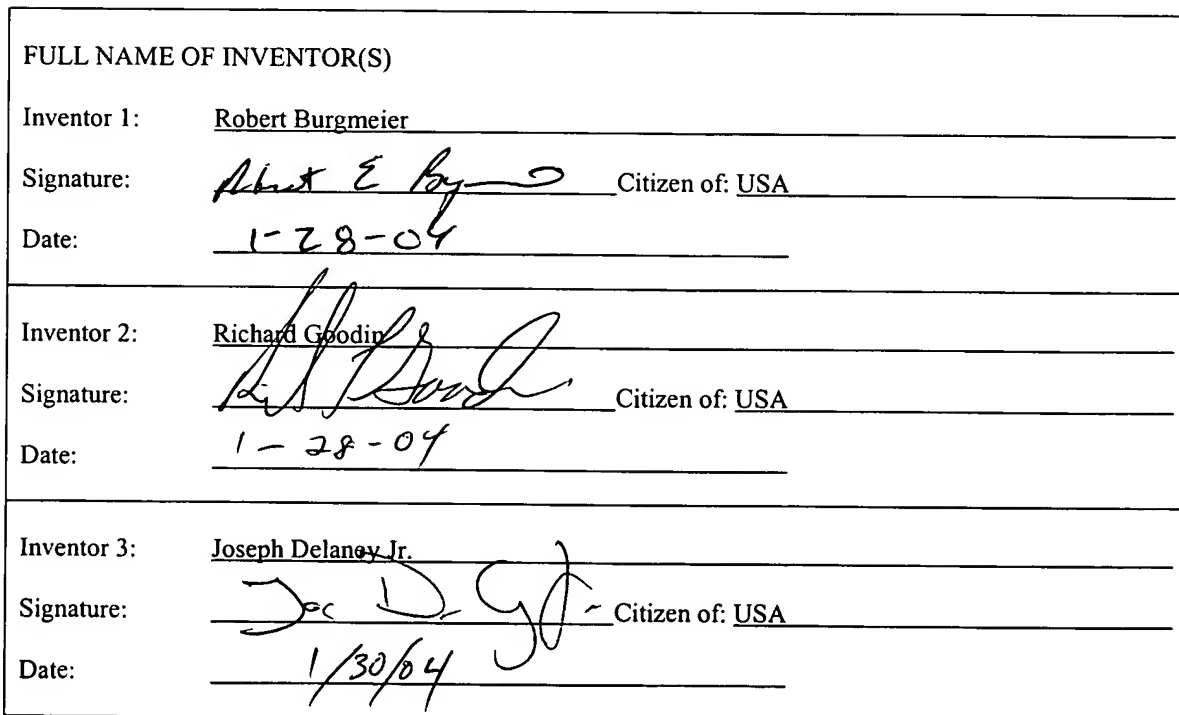 FULL NAME OF INVENTOR(S)
Inventor 1: Robert Burgmeier
Signature: Citizen of: USA
Date: 1-28-04
Inventor 2: Richard Goodin
Signature: Citizen of: USA
Date: 1-28-04
Inventor 3: Joseph Delaney Jr.
Signature: Citizen of: USA
Date: 1/30/04